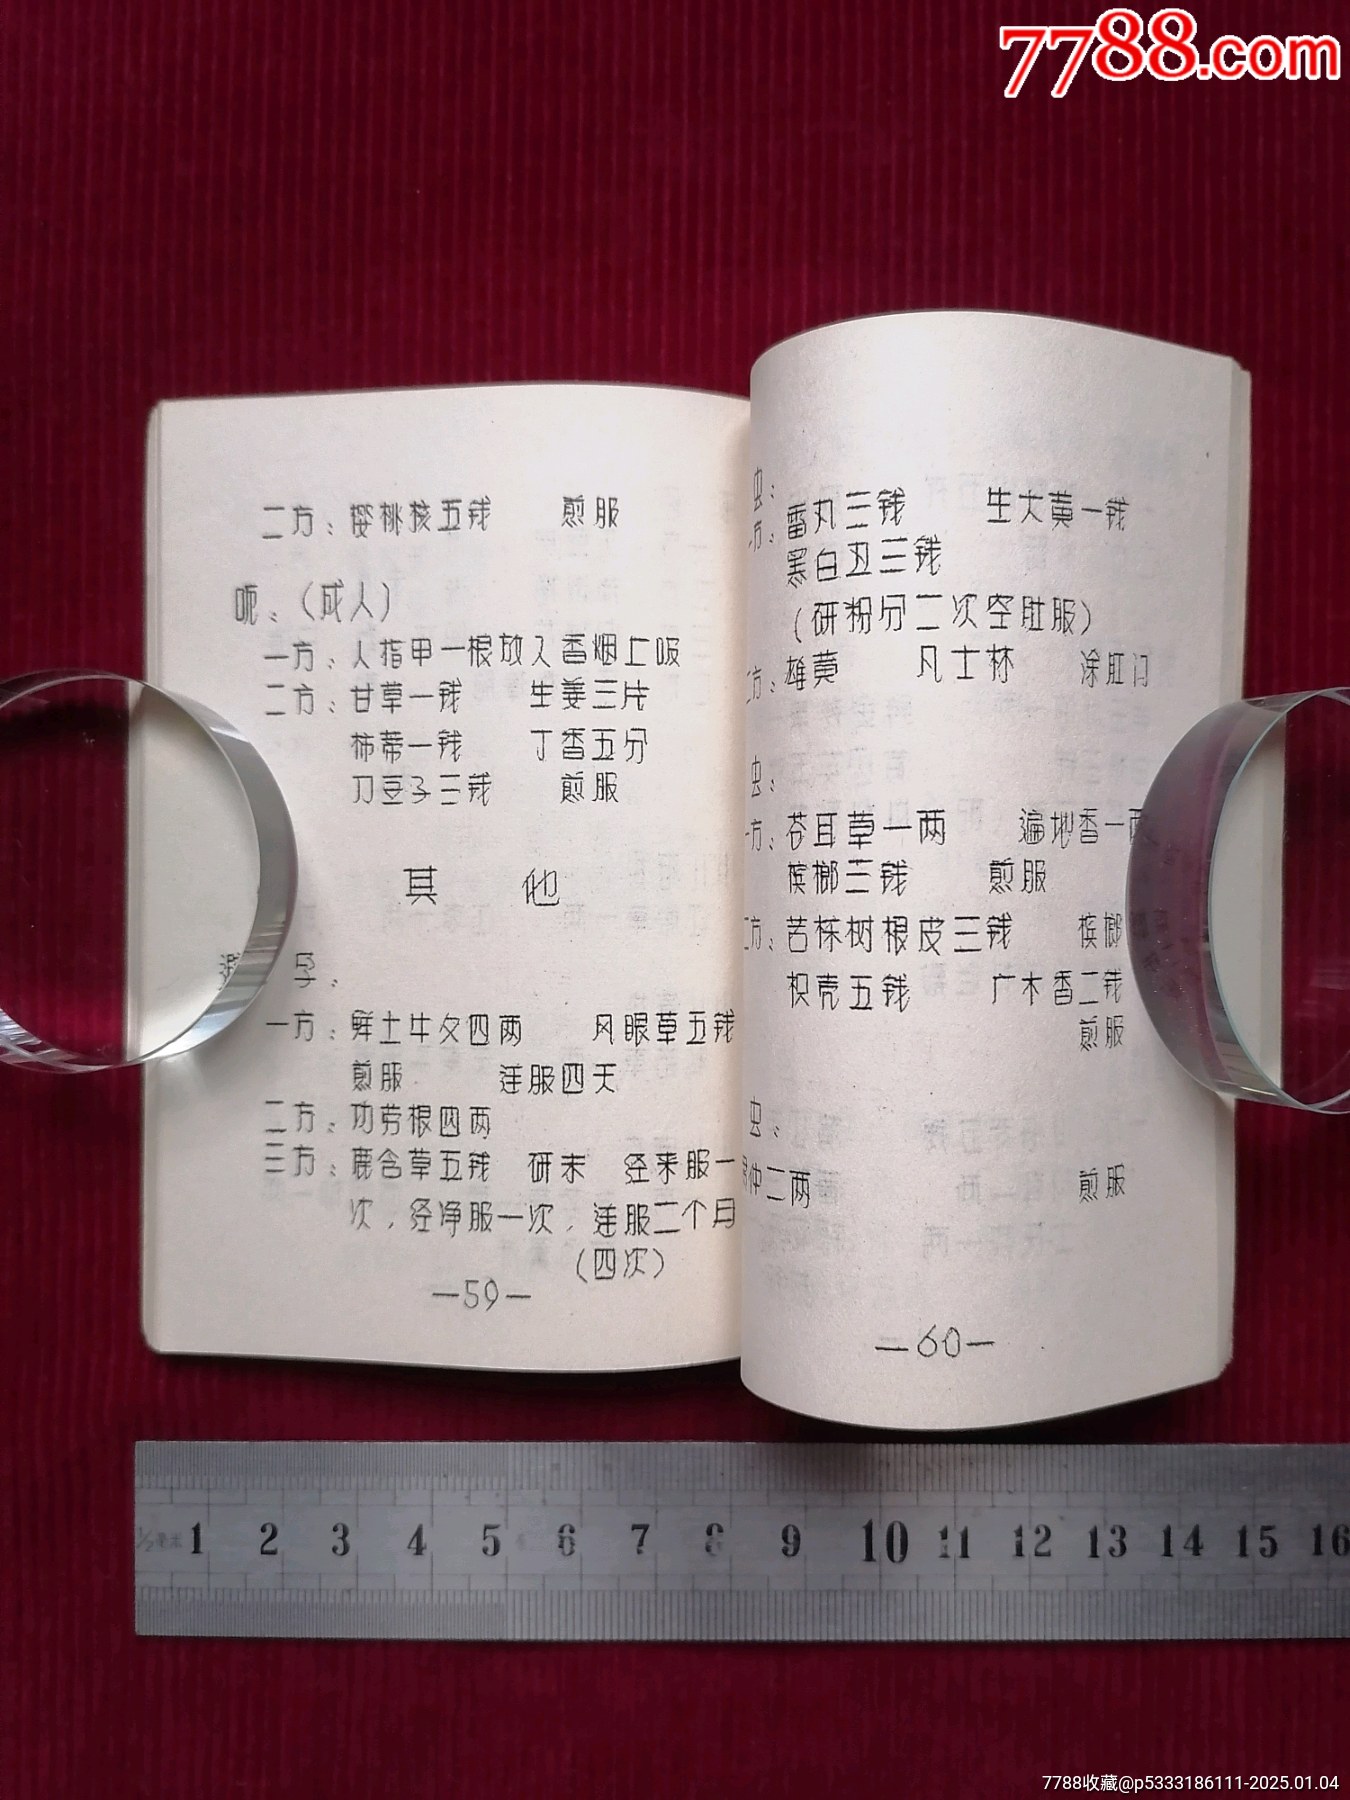 7788.com
二方：樱桃核五钱 煎服
呃：（成人）
一方：人指甲一根放入香烟上吸
二方：甘草一钱 生姜三片
柿蒂一钱 丁香五分
刀豆子三钱 煎服
其 他
孕：
一方：鲜土牛夕四两 风眼草五钱
煎服 连服四天
二方：功劳根四两
三方：鹿含草五钱 研末 经来服一
次，经净服一次，连服二个月
（四次）
—59—
虫：
一方：雷丸三钱 生大黄一钱
黑白丑三钱
（研粉分二次空肚服）
二方：雄黄 凡士林 涂肛门
虫：
一方：苍耳草一两 遍地香一两
槟榔三钱 煎服
二方：苦栋树根皮三钱 槟榔
枳壳五钱 广木香二钱
煎服
虫：
仲二两 煎服
—60—
1 2 3 4 5 6 7 8 9 10 11 12 13 14 15 16
7788收藏@p5333186111-2025.01.04